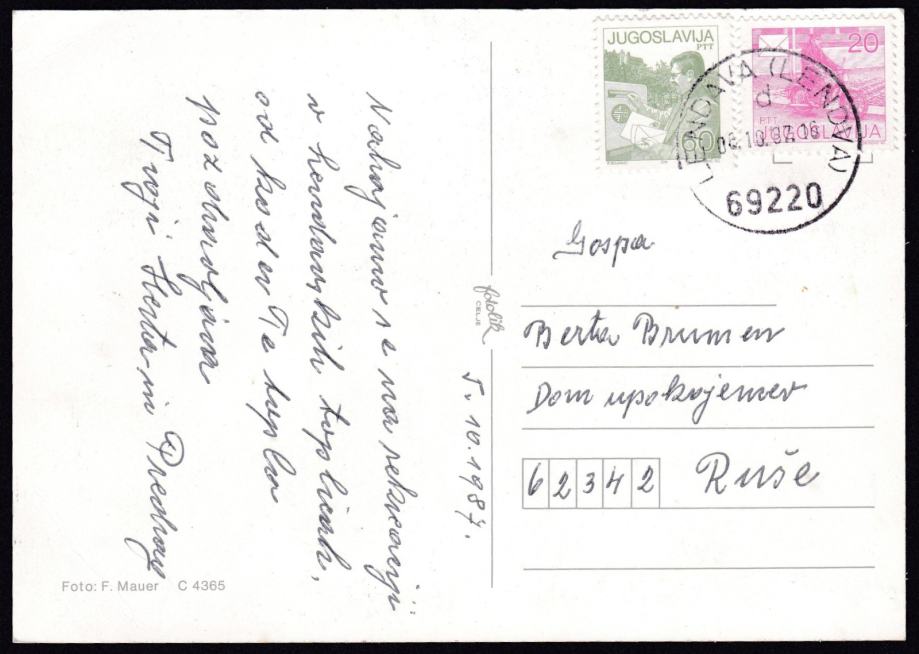 Nahajamo se na rekreaciji
v lendavskih toplicah,
od koder Te toplo
pozdravljava
Tvoji Herta in Predrag
5.10.1987.
Foto: F. Mauer C 4365
fotolik
CELJE
JUGOSLAVIJA
PTT
60
20
PTT
JUGOSLAVIJA
LENDAVA (LENDVA)
d
06.10.87.16
69220
Gospa
Berta Brumen
Dom upokojencev
62342 Ruše